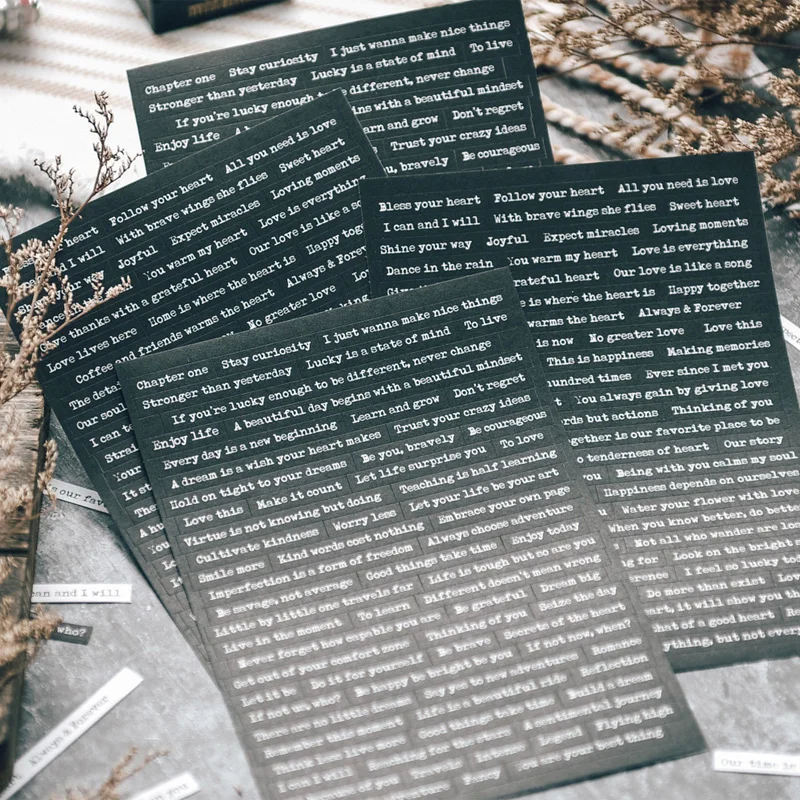 Chapter one Stay curiosity I just wanna make nice things
Stronger than yesterday Lucky is a state of mind To live
If you're lucky enough to be different, never change
Enjoy life
ins with a beautiful mindset
arn and grow Don't regret
Trust your crazy ideas
u, bravely Be courageous
heart Follow your heart All you need is love
and I will With brave wings she flies Sweet heart
your way Joyful Expect miracles Loving moments
You warm my heart Love is everything
Give thanks with a grateful heart Our love is like a so
Love lives here Home is where the heart is Happy toge
Coffee and friends warms the heart Always & Forev
The detai
No greater love Lo
Our soul
I can t
Strai
Your
It st
The
A hu
You
Bless your heart Follow your heart All you need is love
I can and I will With brave wings she flies Sweet heart
Shine your way Joyful Expect miracles Loving moments
Dance in the rain You warm my heart Love is everything
rateful heart Our love is like a song
e is where the heart is Happy together
warms the heart Always & Forever
is now No greater love Love this
This is happiness Making memories
hundred times Ever since I met you
You always gain by giving love
rds but actions Thinking of you
gether is our favorite place to be
o tenderness of heart Our story
you Being with you calms my soul
Happiness depends on ourselves
Water your flower with love
When you know better, do bette
Not all who wander are los
ng for Look on the bright s
rence I feel so lucky tod
Do more than exist Lov
art, it will show you th
hat of a good heart He
ything, but not every
Chapter one Stay curiosity I just wanna make nice things
Stronger than yesterday Lucky is a state of mind To live
If you're lucky enough to be different, never change
Enjoy life A beautiful day begins with a beautiful mindset
Every day is a new beginning Learn and grow Don't regret
A dream is a wish your heart makes Trust your crazy ideas
Hold on tight to your dreams Be you, bravely Be courageous
Love this Make it count Let life surprise you To love
Virtue is not knowing but doing Teaching is half learning
Cultivate kindness Worry less Let your life be your art
Smile more Kind words cost nothing Embrace your own page
Imperfection is a form of freedom Always choose adventure
Be savage, not average Good things take time Enjoy today
Little by little one travels far Life is tough but so are you
Live in the moment To learn Different doesn't mean wrong
Never forget how capable you are Be grateful Dream big
Get out of your comfort zone Thinking of you Seize the day
Let it be Do it for yourself Be brave Secrets of the heart
If not us, who? Be happy be bright be you If not now, when?
There are no little dreams Say yes to new adventures Romance
Remember this moment Life is a beautiful ride Reflection
Think less live more Good things to try time Build a dream
I can I will Reaching for the stars A sentimental journey
Because of you Travels Intense Legend Flying high
Fancy You are your best thing
s our fav
can and I will
who?
Always & Forever
n you
Our time is